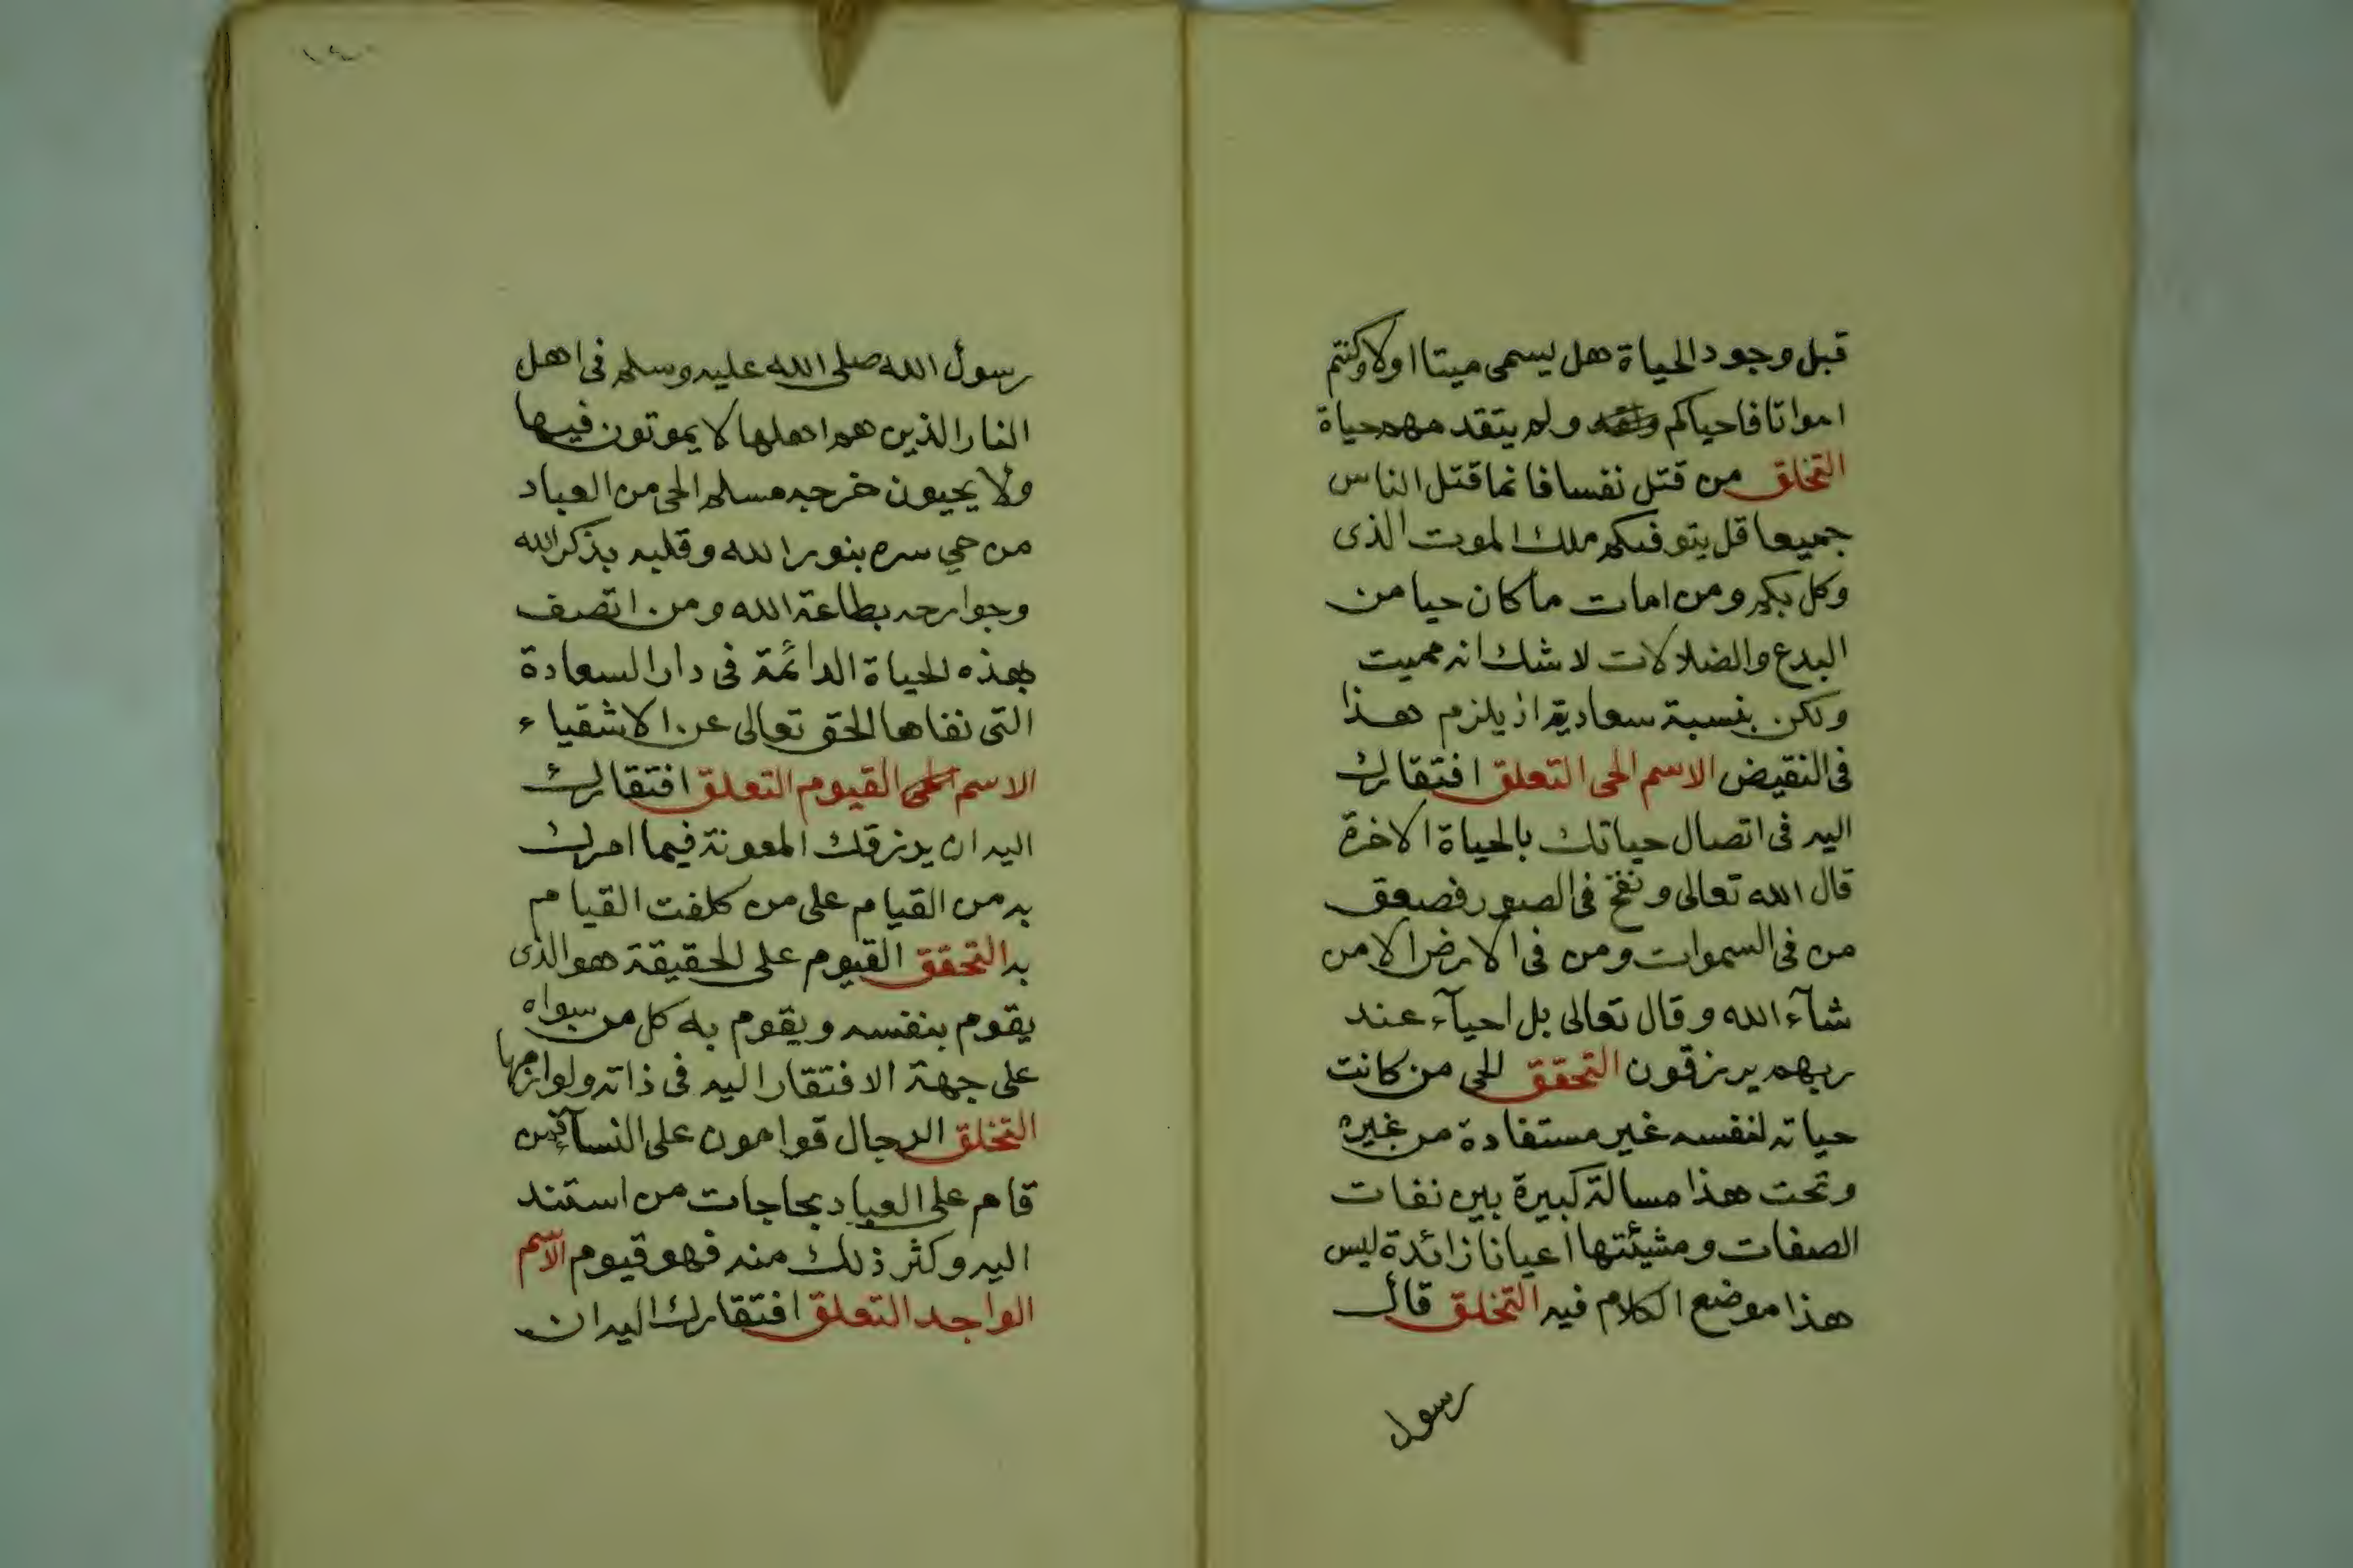 قبل وجود الحياة هل يسمى ميتا اولا وكنتم
امواتا فاحياكم ولم يتقدمهم حياة
التخلق من قتل نفسا فانما قتل الناس
جميعا قل يتوفيكم ملك الموت الذى
وكل بكم ومن امات ما كان حيا من
البدع والضلالات لا شك انه مميت
ولكن بنسبة سعادية اذ يلزم هذا
فى النقيض الاسم الحى التعلق افتقارك
اليه فى اتصال حياتك بالحياة الاخرة
قال الله تعالى ونفخ فى الصور فصعق
من فى السموات ومن فى الارض الا من
شآء الله وقال تعالى بل احيآء عند
ربهم يرزقون التحقق للحى من كانت
حياته لنفسه غير مستفادة من غيره
وتحت هذا مسالة كبيرة بين نفات
الصفات ومشيئتها اعيانا زائدة ليس
هذا موضع الكلام فيه التخلق قال
رسول
١٤٠
رسول الله صلى الله عليه وسلم فى اهل
النار الذين هم اهلها لا يموتون فيها
ولا يحيون خرجه مسلم الحى من العباد
من حي سره بنور الله وقلبه بذكر الله
وجوارحه بطاعة الله ومن اتصف
بهذه الحياة الدائمة فى دار السعادة
التى نفاها الحق تعالى عن الاشقياء
الاسم القيوم التعلق افتقارك
اليه ان يرزقك المعونة فيما امرك
به من القيام على من كلفت القيام
به التحقق القيوم على الحقيقة هو الذى
يقوم بنفسه ويقوم به كل من سواه
على جهة الافتقار اليه فى ذاته ولوازمها
التخلق الرجال قوامون على النسآء فمن
قام على العباد بحاجات من استند
اليه وكثر ذلك منه فهو قيوم الاسم
الواجد التعلق افتقارك اليه ان